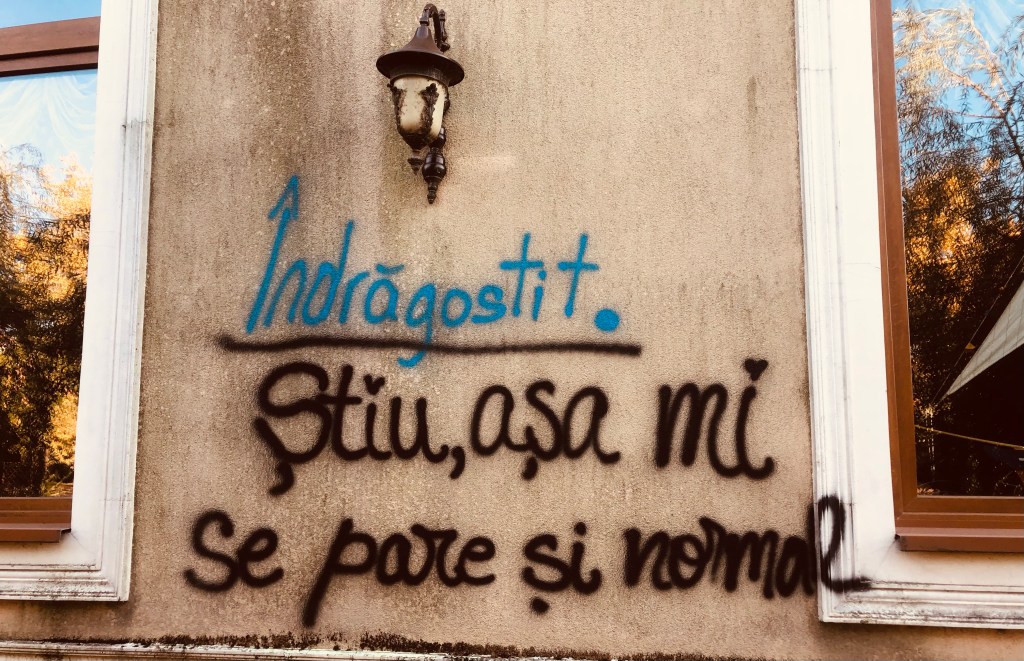 Îndrăgostit.
Știu, așa mi
se pare și normal